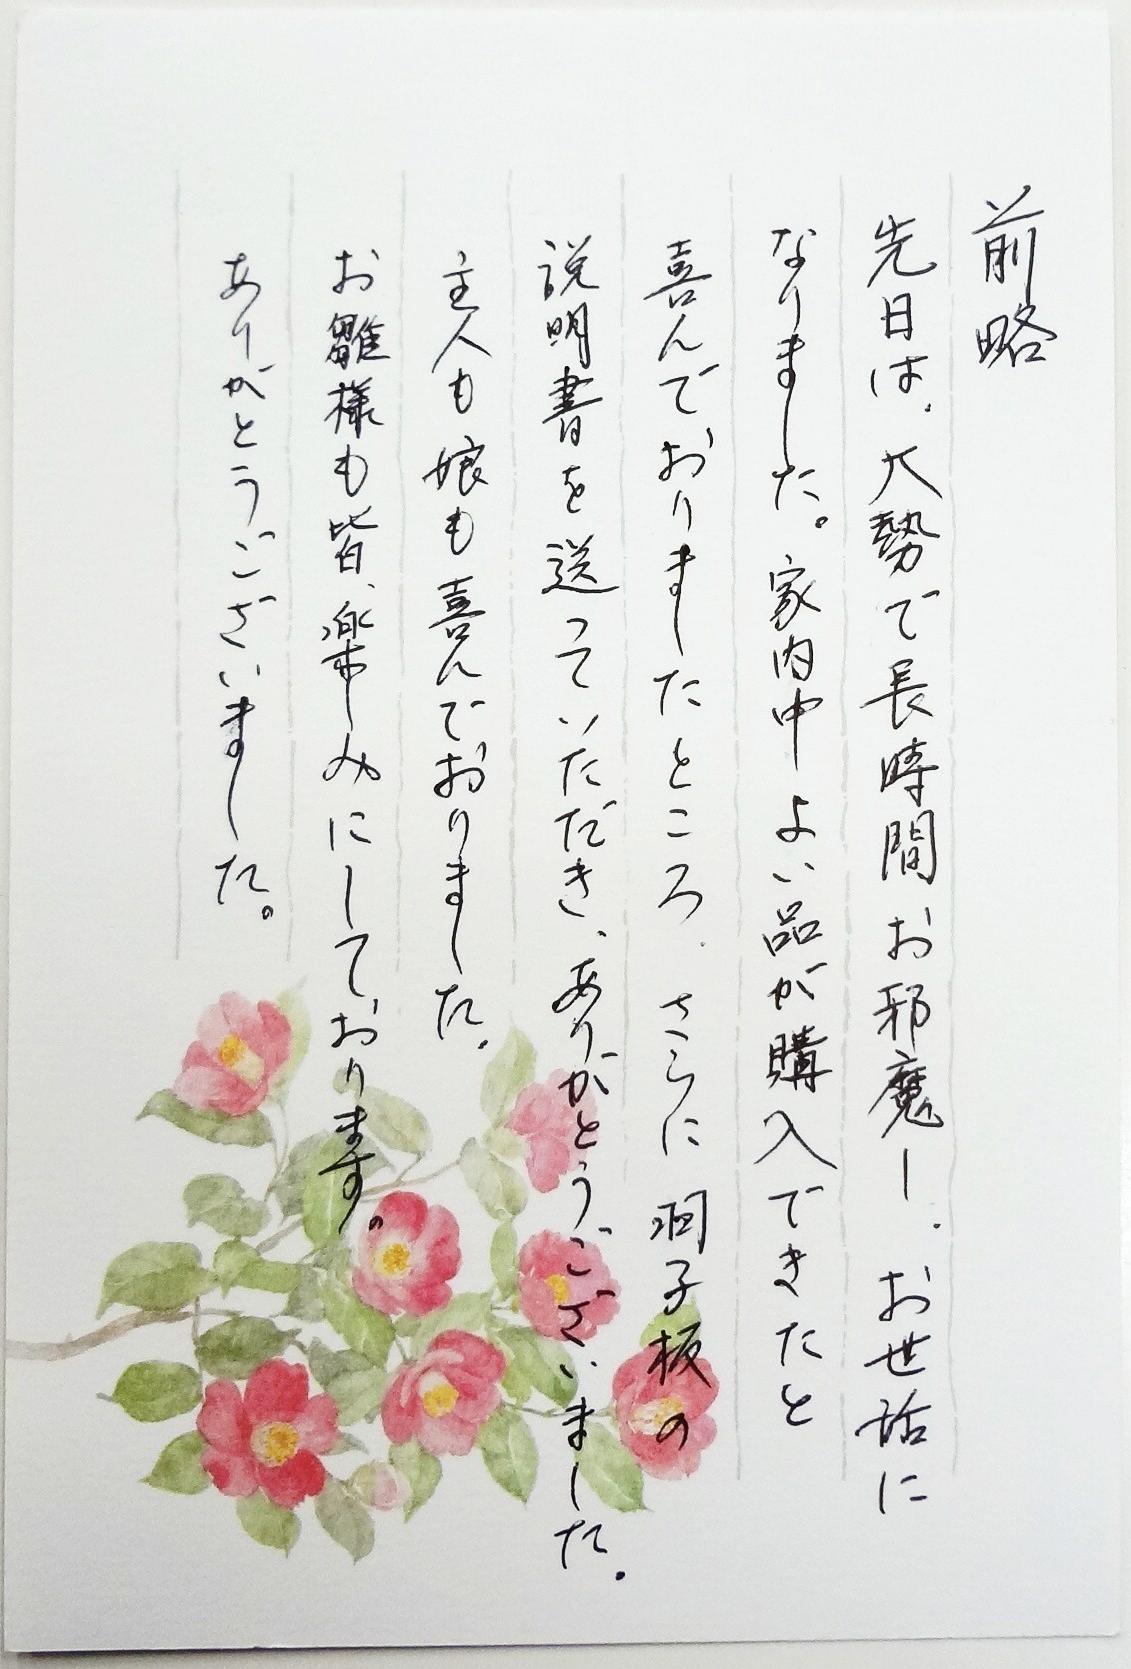 前略
先日は、大勢で長時間お邪魔し、お世話に
なりました。家内中よい品が購入できたと
喜んでおりましたところ、さらに羽子板の
説明書を送っていただき、ありがとうございました。
主人も娘も喜んでおりました。
お雛様も皆、楽しみにしております。
ありがとうございました。